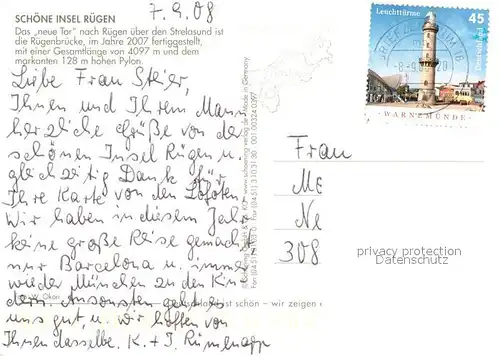 SCHÖNE INSEL RÜGEN
Das „neue Tor" nach Rügen über den Strelasund ist
die Rügenbrücke, im Jahre 2007 fertiggestellt,
mit einer Gesamtlänge von 4097 m und dem
markanten 128 m hohen Pylon.
7.9.08
Liebe Frau Steier,
Ihnen und Ihrem Mann
herzliche Grüße von der
schönen Insel Rügen u.
gleichzeitig Dank für
Ihre Karte von den Lofoten.
Wir haben in diesem Jahr
keine große Reise gemacht
nur Barcelona u. immer
wieder München zu den Kin
dern. Ansonsten geht es
uns gut, u. wir hoffen von
Ihnen dasselbe. K. + J.
schland ist schön – wir zeigen
Made in Germany
Leuchttürme
45
Deutschland
WARNEMÜNDE
Frau
Me
Ne
308
privacy protection
Datenschutz